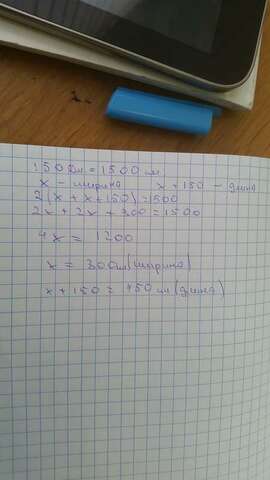 150 дм = 1500 см
x - ширина x + 150 - длина
2(x + x + 150) = 1500
2x + 2x + 300 = 1500
4x = 1200
x = 300 см (ширина)
x + 150 = 450 см (длина)